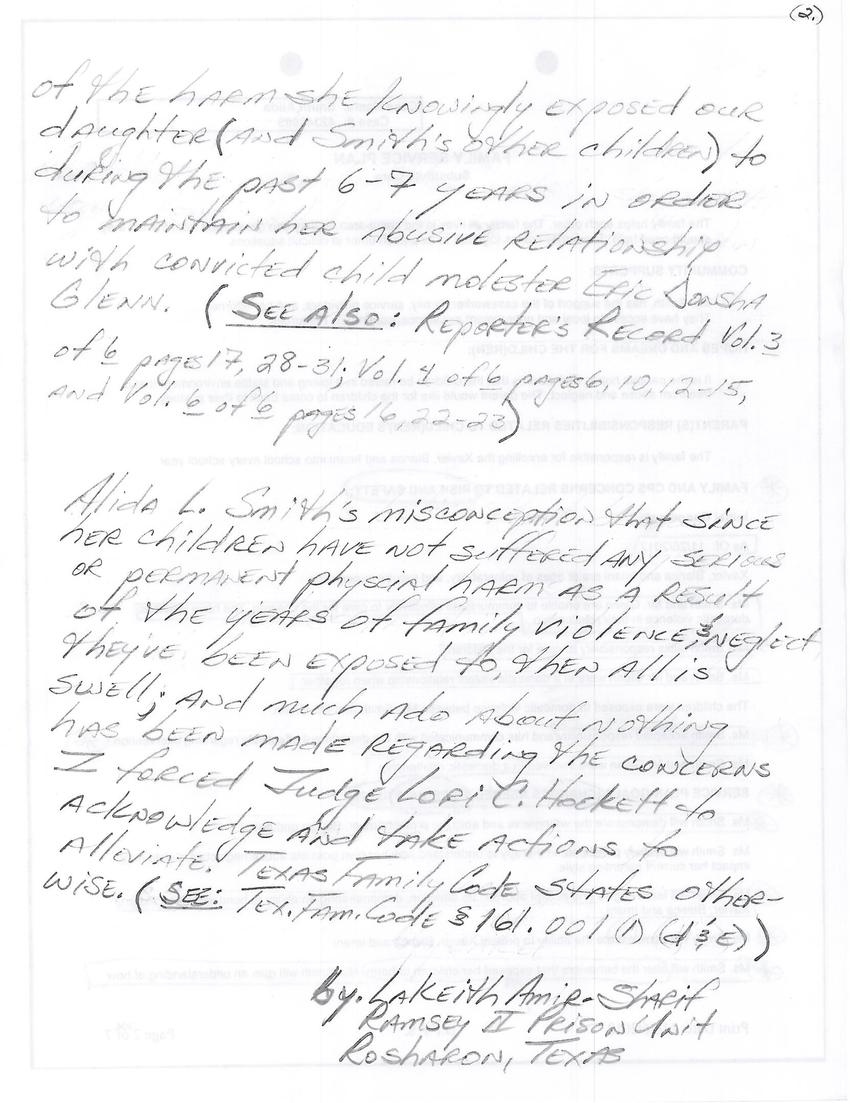 (2.)
of the harm she knowingly exposed our
daughter (and Smith's other children) to
during the past 6-7 years in order
to maintain her abusive relationship
with convicted child molester Eric Donsha
Glenn. (See Also: Reporter's Record Vol. 3
of 6 pages 17, 28-31; Vol. 4 of 6 pages 6, 10, 12-15,
and Vol. 6 of 6 pages 16, 22-23)
Alida L. Smith's misconception that since
her children have not suffered any serious
or permanent physcial harm as a result
of the years of family violence & neglect
they've been exposed to then all is
swell; and much ado about nothing
has been made regarding the concerns
I forced Judge Lori C. Hockett to
acknowledge and take actions to
alleviate. Texas Family Code states other-
wise. (See: Tex. Fam. Code § 161.001 (1) (d & e))
by. Lakeith Amir-Sharif
Ramsey II Prison Unit
Rosharon, Texas